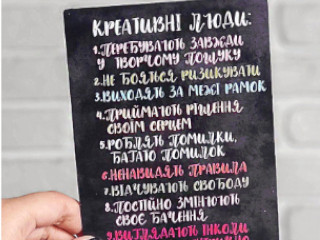 КРЕАТИВНІ ЛЮДИ:
1. ПЕРЕБУВАЮТЬ ЗАВЖДИ
У ТВОРЧОМУ ПОШУКУ
2. НЕ БОЯТЬСЯ РИЗИКУВАТИ
3. ВИХОДЯТЬ ЗА МЕЖІ РАМОК
4. ПРИЙМАЮТЬ РІШЕННЯ
СВОЇМ СЕРЦЕМ
5. РОБЛЯТЬ ПОМИЛКИ,
БАГАТО ПОМИЛОК
6. НЕНАВИДЯТЬ ПРАВИЛА
7. ВІДЧУВАЮТЬ СВОБОДУ
8. ПОСТІЙНО ЗМІНЮЮТЬ
СВОЄ БАЧЕННЯ
9. ВИГЛЯДАЮТЬ ІНКОЛИ